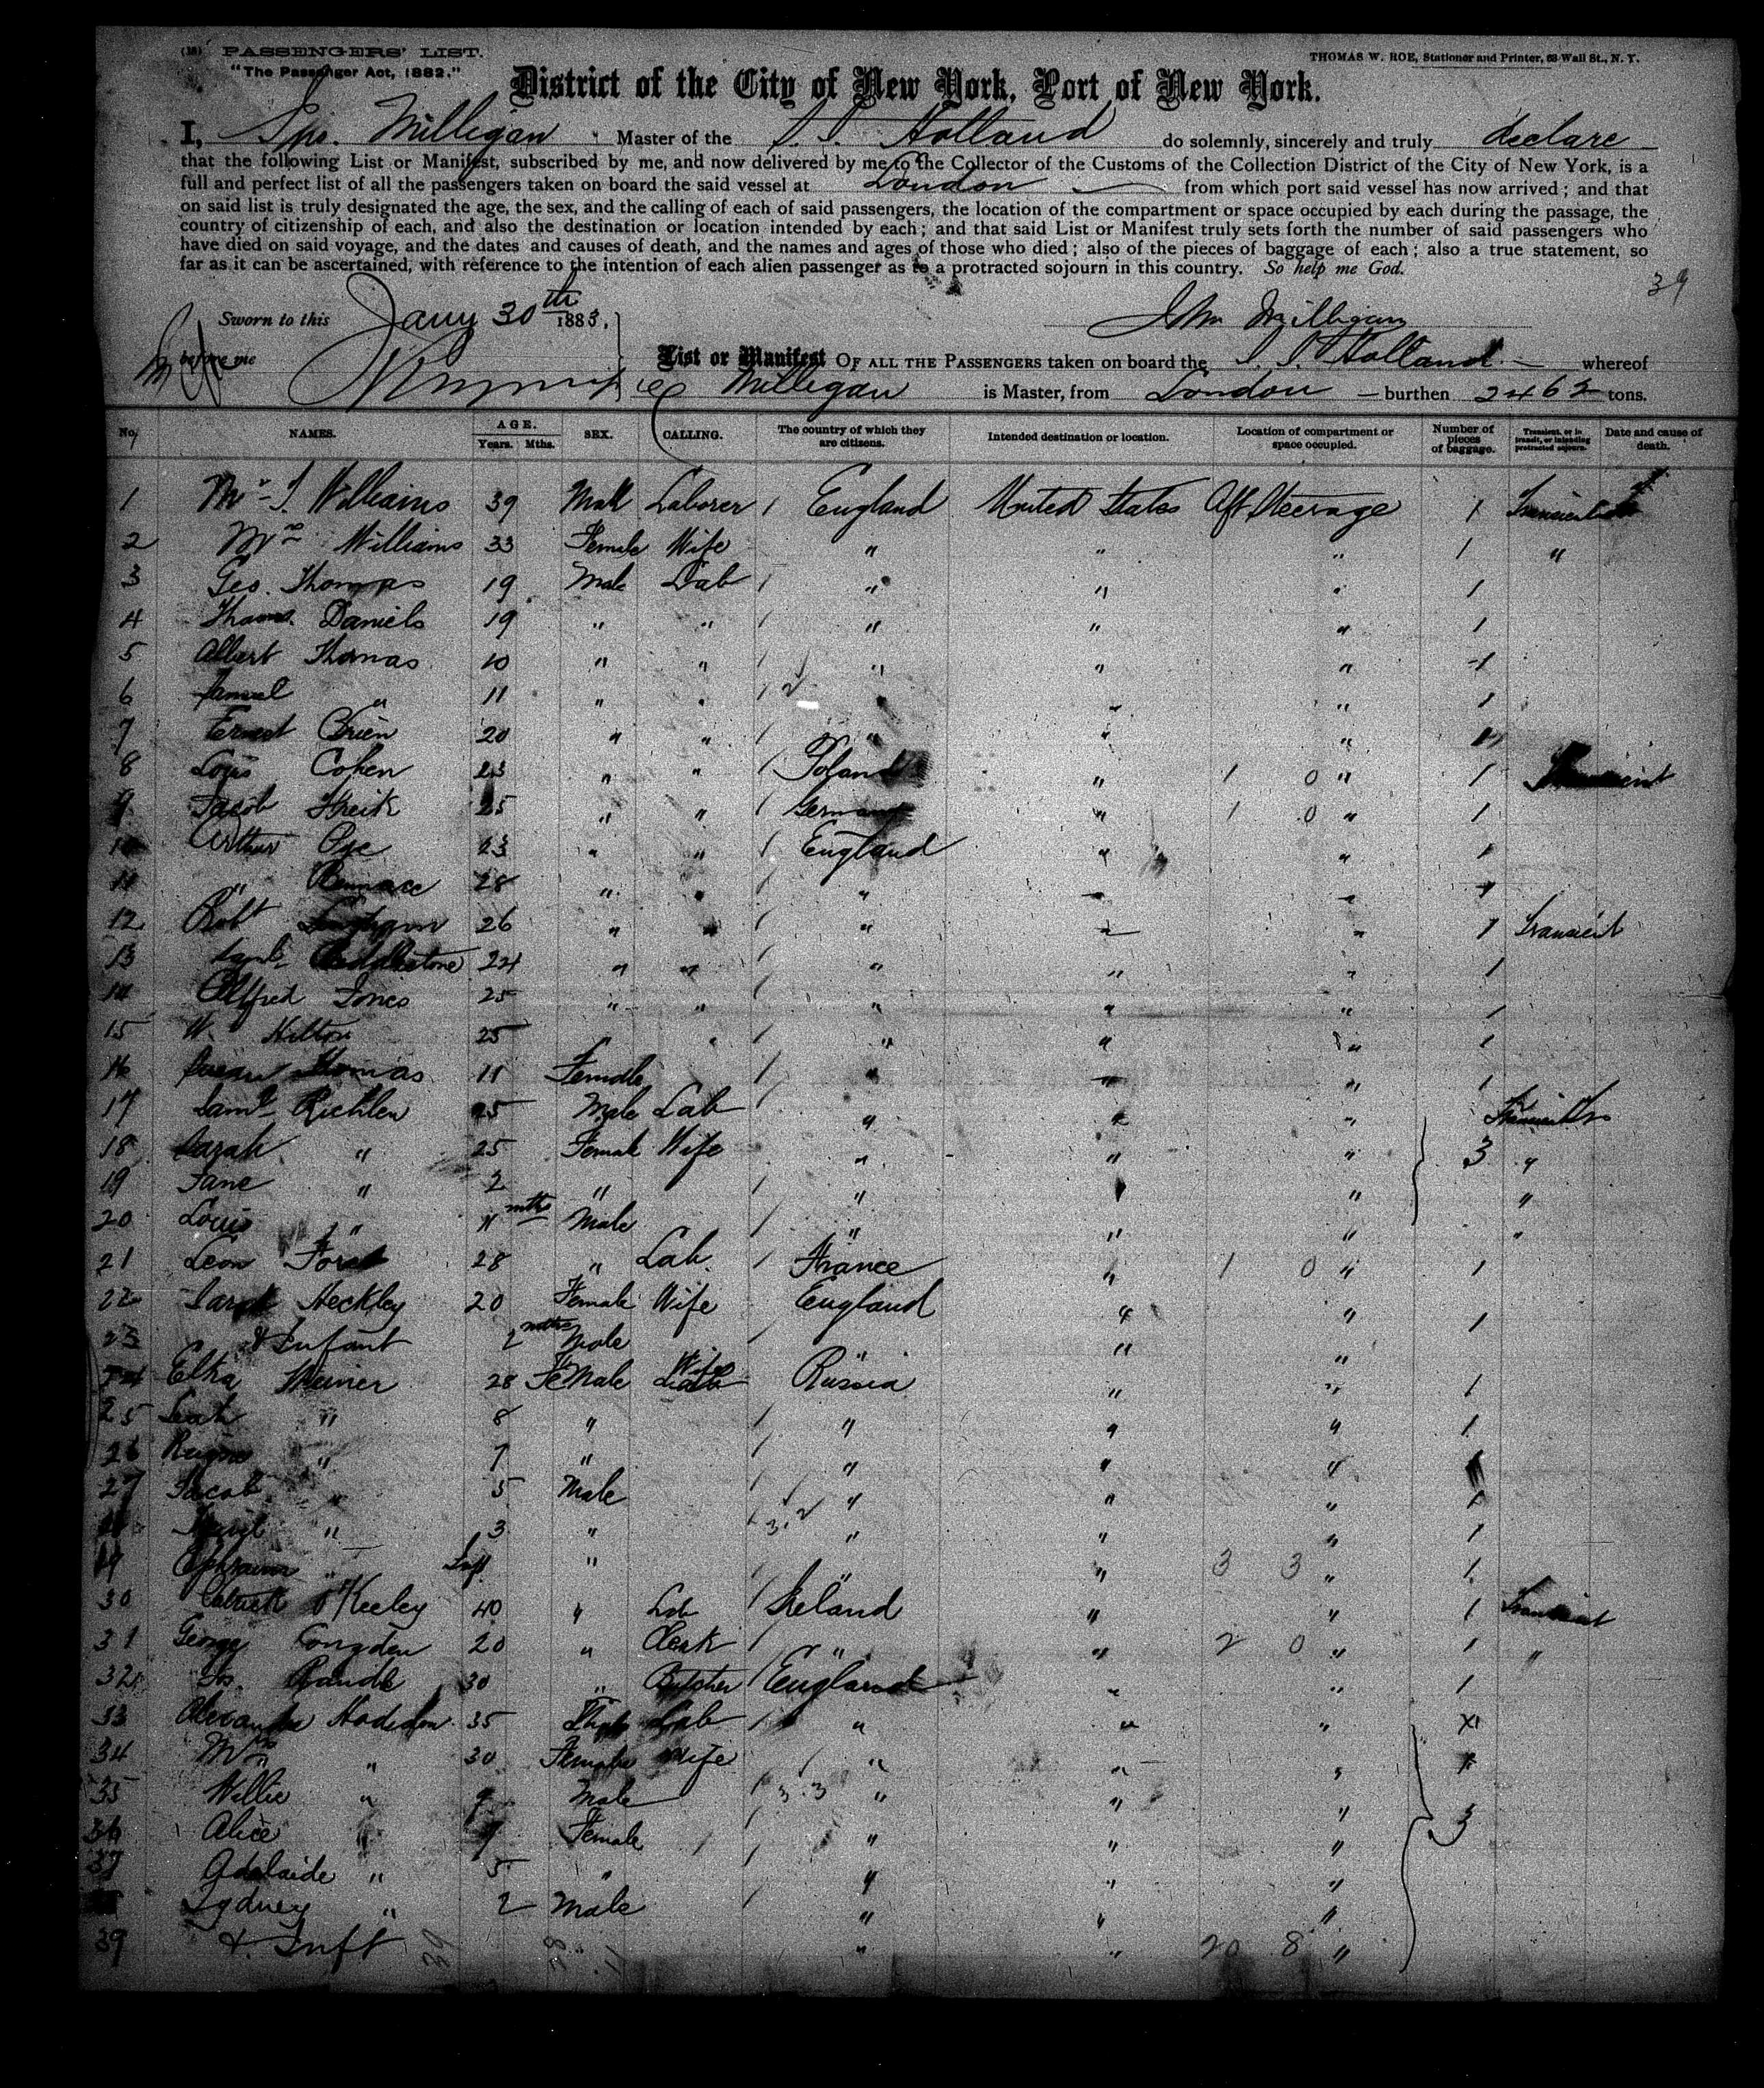 (18) PASSENGERS' LIST.
"The Passenger Act, 1882."
THOMAS W. ROE, Stationer and Printer, 63 Wall St., N. Y.
District of the City of New York, Port of New York.
I, Milligan Master of the S. S. Holland do solemnly, sincerely and truly declare
that the following List or Manifest, subscribed by me, and now delivered by me to the Collector of the Customs of the Collection District of the City of New York, is a
full and perfect list of all the passengers taken on board the said vessel at London from which port said vessel has now arrived; and that
on said list is truly designated the age, the sex, and the calling of each of said passengers, the location of the compartment or space occupied by each during the passage, the
country of citizenship of each, and also the destination or location intended by each; and that said List or Manifest truly sets forth the number of said passengers who
have died on said voyage, and the dates and causes of death, and the names and ages of those who died; also of the pieces of baggage of each; also a true statement, so
far as it can be ascertained, with reference to the intention of each alien passenger as to a protracted sojourn in this country. So help me God.
39
Sworn to this Jany 30th 1883, Jno Milligan
before me
List or Manifest OF ALL THE PASSENGERS taken on board the S. S. Holland whereof
Milligan is Master, from London burthen 2463 tons.
No. NAMES. AGE. Years. Mths. SEX. CALLING. The country of which they are citizens. Intended destination or location. Location of compartment or space occupied. Number of pieces of baggage. Transient, or in transit, or intending protracted sojourn. Date and cause of death.
1 Mr J. Williams 39 Male Laborer England United States Aft Steerage 1 Transient
2 Mrs Williams 33 Female Wife " " " 1 "
3 Geo. Thomas 19 Male Lab " " " 1
4 Daniels 19 " " " " " 1
5 Albert Thomas 10 " " " " " 1
6 Samuel " 11 " " " " 1
7 Ernest 20 " " " " "
8 Louis Cohen 23 " " Poland " 1 0 " 1 Transient
9 Jacob 25 " " Germany " 1 0 " 1
10 Arthur 23 " " England " " 1
11 " 28 " " " " " 1
12 Robt 26 " " " " " 1 Transient
13 24 " " " " " 1
14 Alfred Jones 25 " " " " " 1
15 W. Hilton 25 " " " " 1
16 Thomas 11 Female " " " 1
17 Saml Richler 25 Male Lab " " " Transient
18 Sarah " 25 Female Wife " " " 3 "
19 Jane " 2 " " " "
20 Louis " 11 mths Male " " " "
21 Leon 28 " Lab. France " 1 0 " 1
22 Sarah Heckley 20 Female Wife England " " 1
23 & Infant 2 mths Male " " "
24 Elka 28 Female Wife Russia " " 1
25 Leah " 8 " " " " 1
26 " 7 " " " "
27 Jacob " 5 Male " " " 1
" 3 " 3.2 " " " 1
Ephraim " Inft " " 3 3 " 1
30 Patrick 40 " Lab Ireland " " 1 Transient
31 George Congden 20 " Clerk " " 2 0 " 1 "
32 30 " Butcher England " " 1
33 Alexander 35 Lab " " "
34 Mrs " 30 Female Wife " " "
35 Willie " 9 Male 3.3 " " "
36 Alice " 7 Female " " " 3
37 Adelaide " 5 " " " "
Sydney " 2 Male " " "
39 & Inft " " 20 8 "